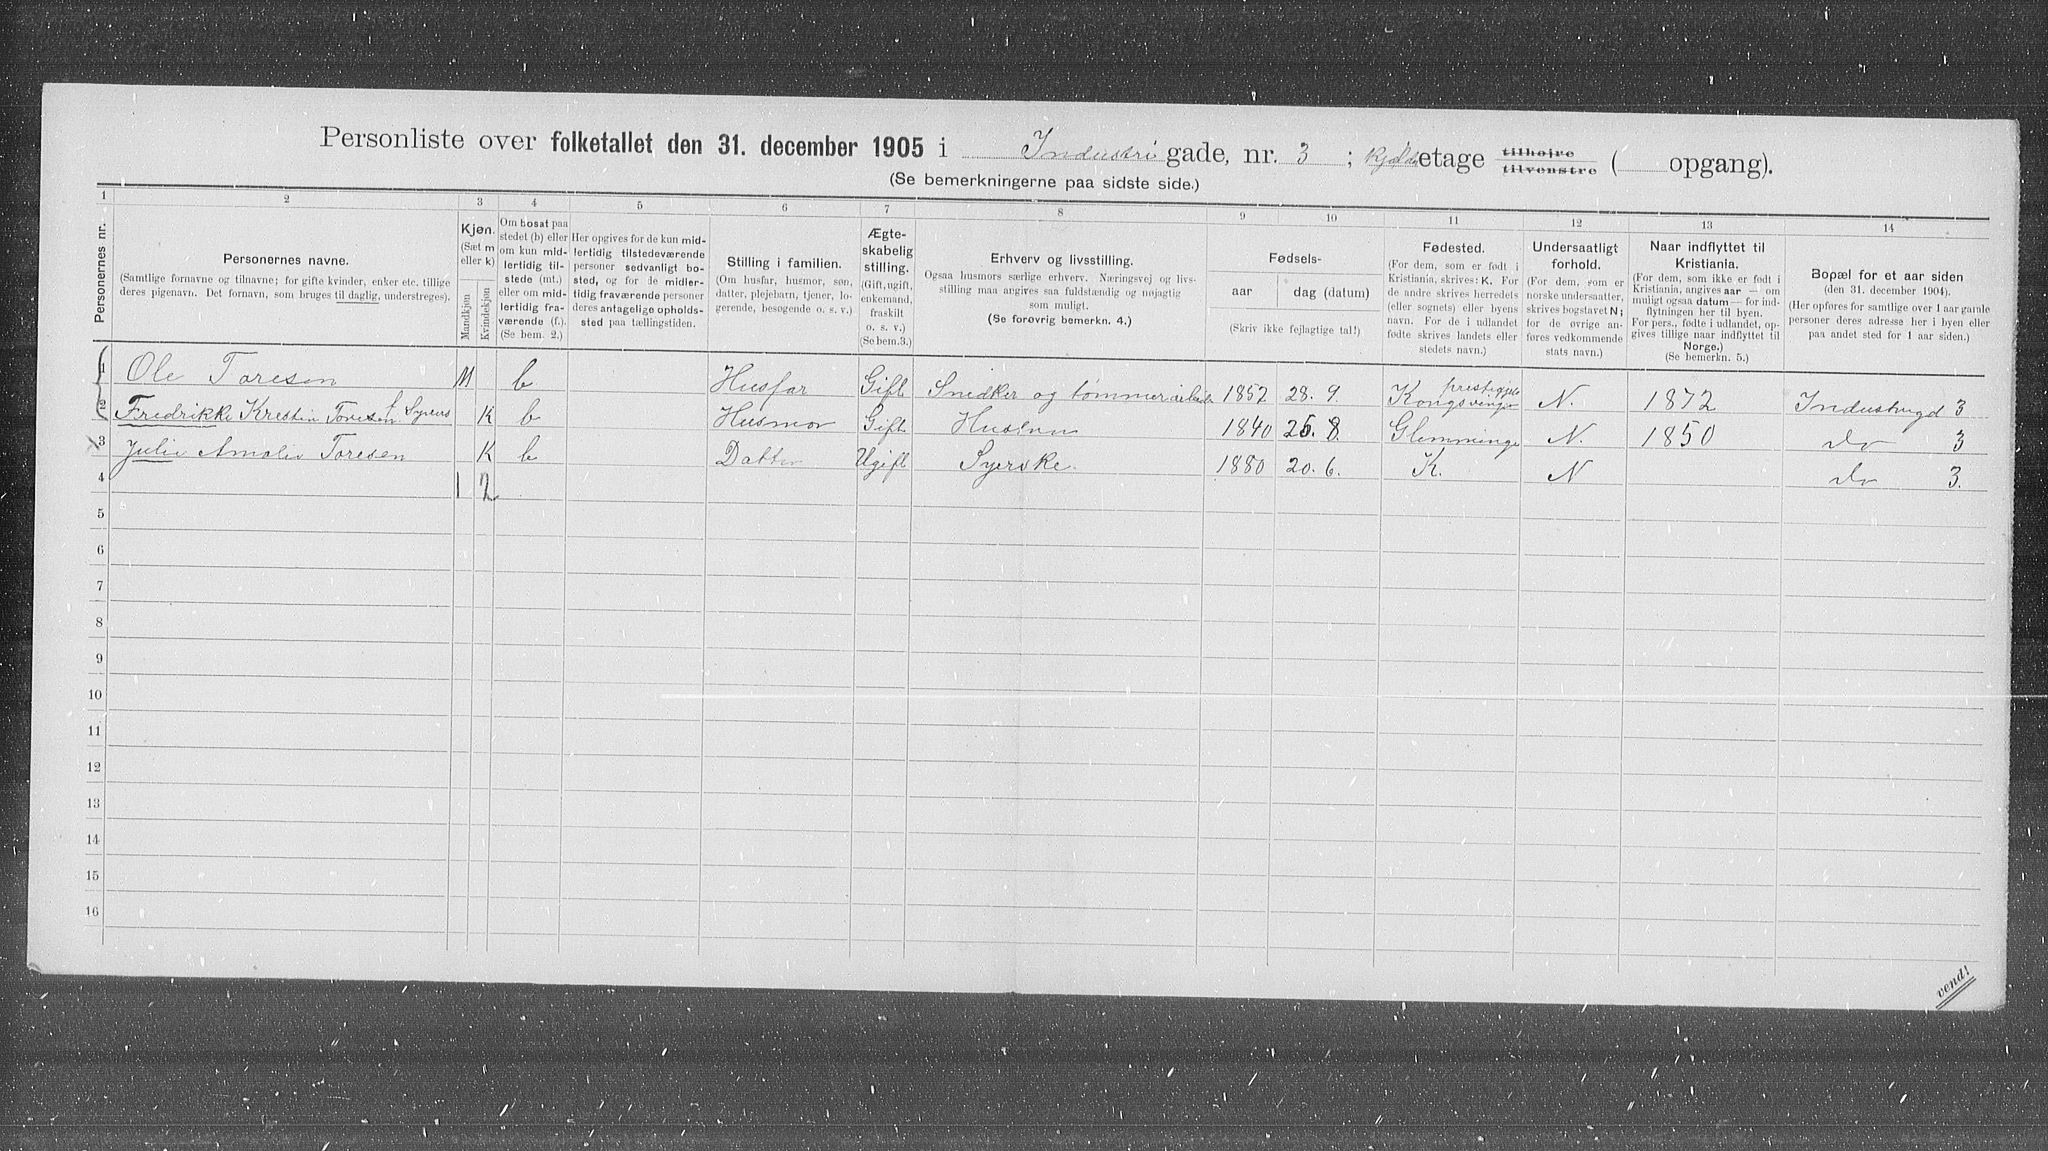 Personliste over folketallet den 31. december 1905 i Industri gade, nr. 3 ; Kjelder etage tilhøire tilvenstre ( opgang).
(Se bemerkningerne paa sidste side.)
1 2 3 4 5 6 7 8 9 10 11 12 13 14
Personernes nr.
Personernes navne.
(Samtlige fornavne og tilnavne; for gifte kvinder, enker etc. tillige
deres pigenavn. Det fornavn, som bruges til daglig, understreges).
Kjøn.
(Sæt m
eller k)
Mandkjøn
Kvindekjøn
Om bosat paa
stedet (b) eller
om kun mid-
lertidig til-
stede (mt.)
eller om mid-
lertidig fra-
værende (f.).
(Se bem. 2.)
Her opgives for de kun mid-
lertidig tilstedeværende
personer sedvanligt bo-
sted, og for de midler-
tidig fraværende personer
deres antagelige opholds-
sted paa tællingstiden.
Stilling i familien.
(Om husfar, husmor, søn,
datter, plejebarn, tjener, lo-
gerende, besøgende o. s. v.)
Ægte-
skabelig
stilling.
(Gift, ugift,
enkemand,
fraskilt
o. s. v.)
(Se bem.3.)
Erhverv og livsstilling.
Ogsaa husmors særlige erhverv. Næringsvej og livs-
stilling maa angives saa fuldstændig og nøjagtig
som muligt.
(Se forøvrig bemerkn. 4.)
Fødsels-
aar
dag (datum)
(Skriv ikke fejlagtige tal!)
Fødested.
(For dem, som er født i
Kristiania, skrives: K. For
de andre skrives herredets
(eller sognets) eller byens
navn. For de i udlandet
fødte skrives landets eller
stedets navn.)
Undersaatligt
forhold.
(For dem, som er
norske undersaatter,
skrives bogstavet N;
for de øvrige an-
føres vedkommende
stats navn.)
Naar indflyttet til
Kristiania.
(For dem, som ikke er født i
Kristiania, angives aar — om
muligt ogsaa datum — for ind-
flytningen her til byen.
For pers., fødte i udlandet, op-
gives tillige naar indflyttet til
Norge.)
(Se bemerkn. 5.)
Bopæl for et aar siden
(den 31. december 1904).
(Her opføres for samtlige over 1 aar gamle
personer deres adresse her i byen eller
paa andet sted for 1 aar siden.)
1 Ole Toresen M b Husfar Gift Snedker og tømmerarbeider 1852 28. 9. Kongsvinger prestegjeld N. 1872 Industrigd 3
2 Fredrikke Krestin Toresen f. Syvers K b Husmor Gift 1840 25. 8. Glemminge N. 1850 do 3
3 Julie Amalie Toresen K b Datter Ugift Syerske. 1880 20. 6. K. N do 3.
4 1 2
5
6
7
8
9
10
11
12
13
14
15
16
vend!